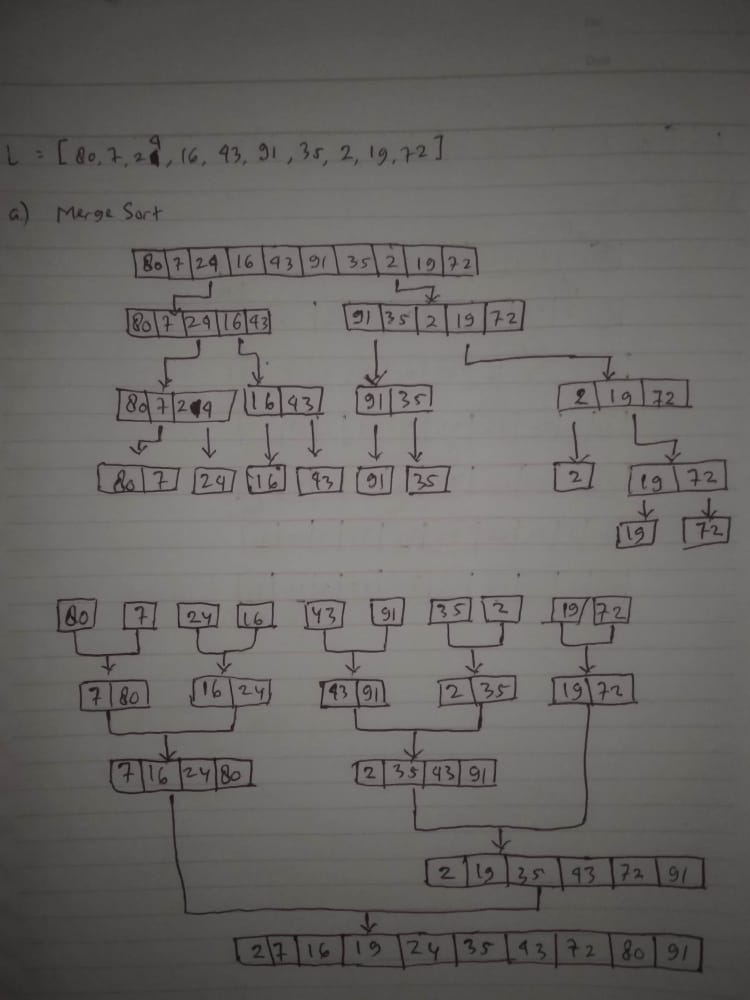 L = [80, 7, 24, 16, 43, 91, 35, 2, 19, 72]
a.) Merge Sort
80 7 24 16 43 91 35 2 19 72
80 7 24 16 43 91 35 2 19 72
80 7 24 16 43 91 35 2 19 72
80 7 24 16 43 91 35 2 19 72
19 72
80 7 24 16 43 91 35 2 19 72
7 80 16 24 43 91 2 35 19 72
7 16 24 80 2 35 43 91
2 19 35 43 72 91
2 7 16 19 24 35 43 72 80 91